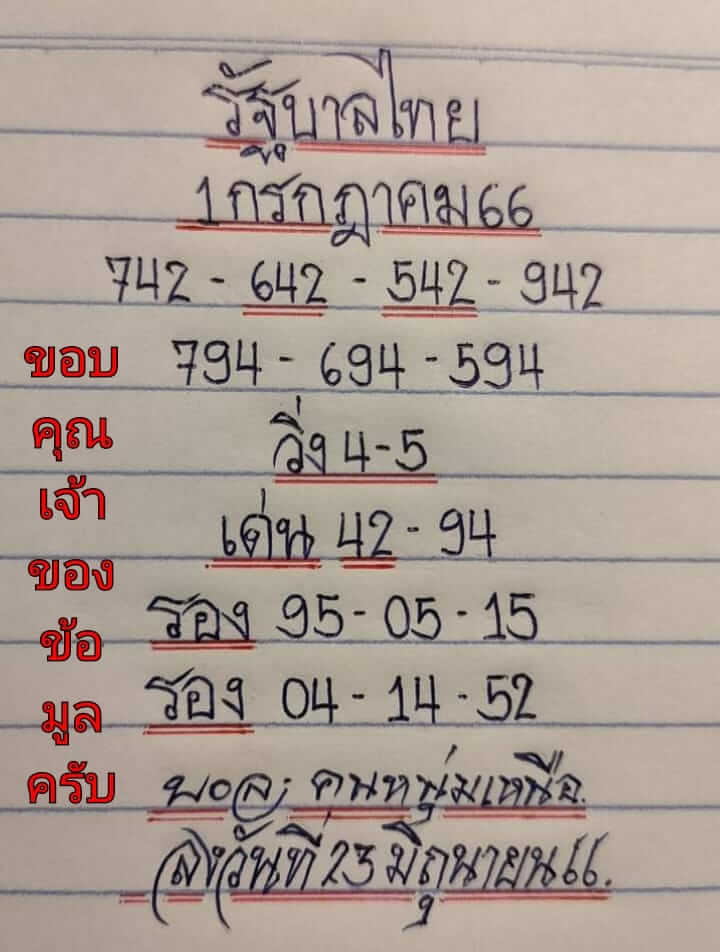 รัฐบาลไทย
1 กรกฎาคม 66
742 - 642 - 542 - 942
794 - 694 - 594
วิ่ง 4 - 5
เด่น 42 - 94
รอง 95 - 05 - 15
รอง 04 - 14 - 52
คนหนุ่มเหนือ.
วันที่ 23 มิถุนายน 66.
ขอบ
คุณ
เจ้า
ของ
ข้อ
มูล
ครับ